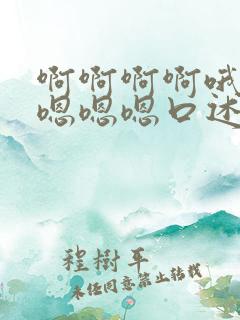 啊啊啊啊哦
嗯嗯嗯口述
程樹平
未经同意禁止转载